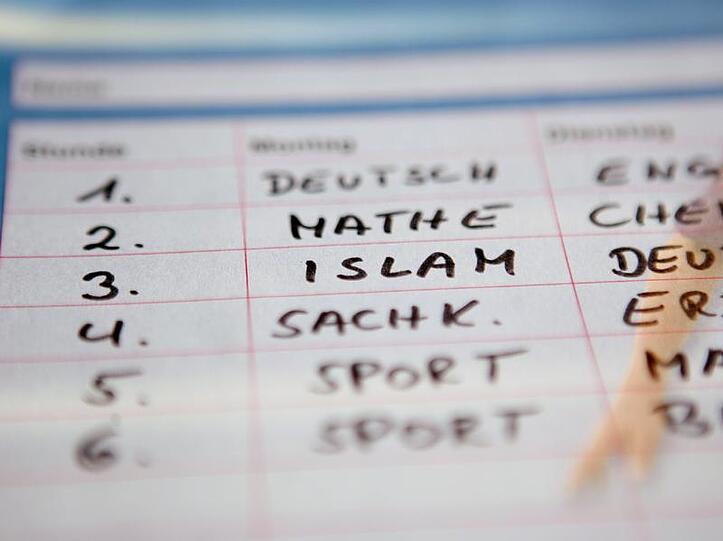 Name
Stunde Montag Dienstag
1. DEUTSCH ENG
2. MATHE CHE
3. ISLAM DEU
4. SACHK. ER
5. SPORT MA
6. SPORT B